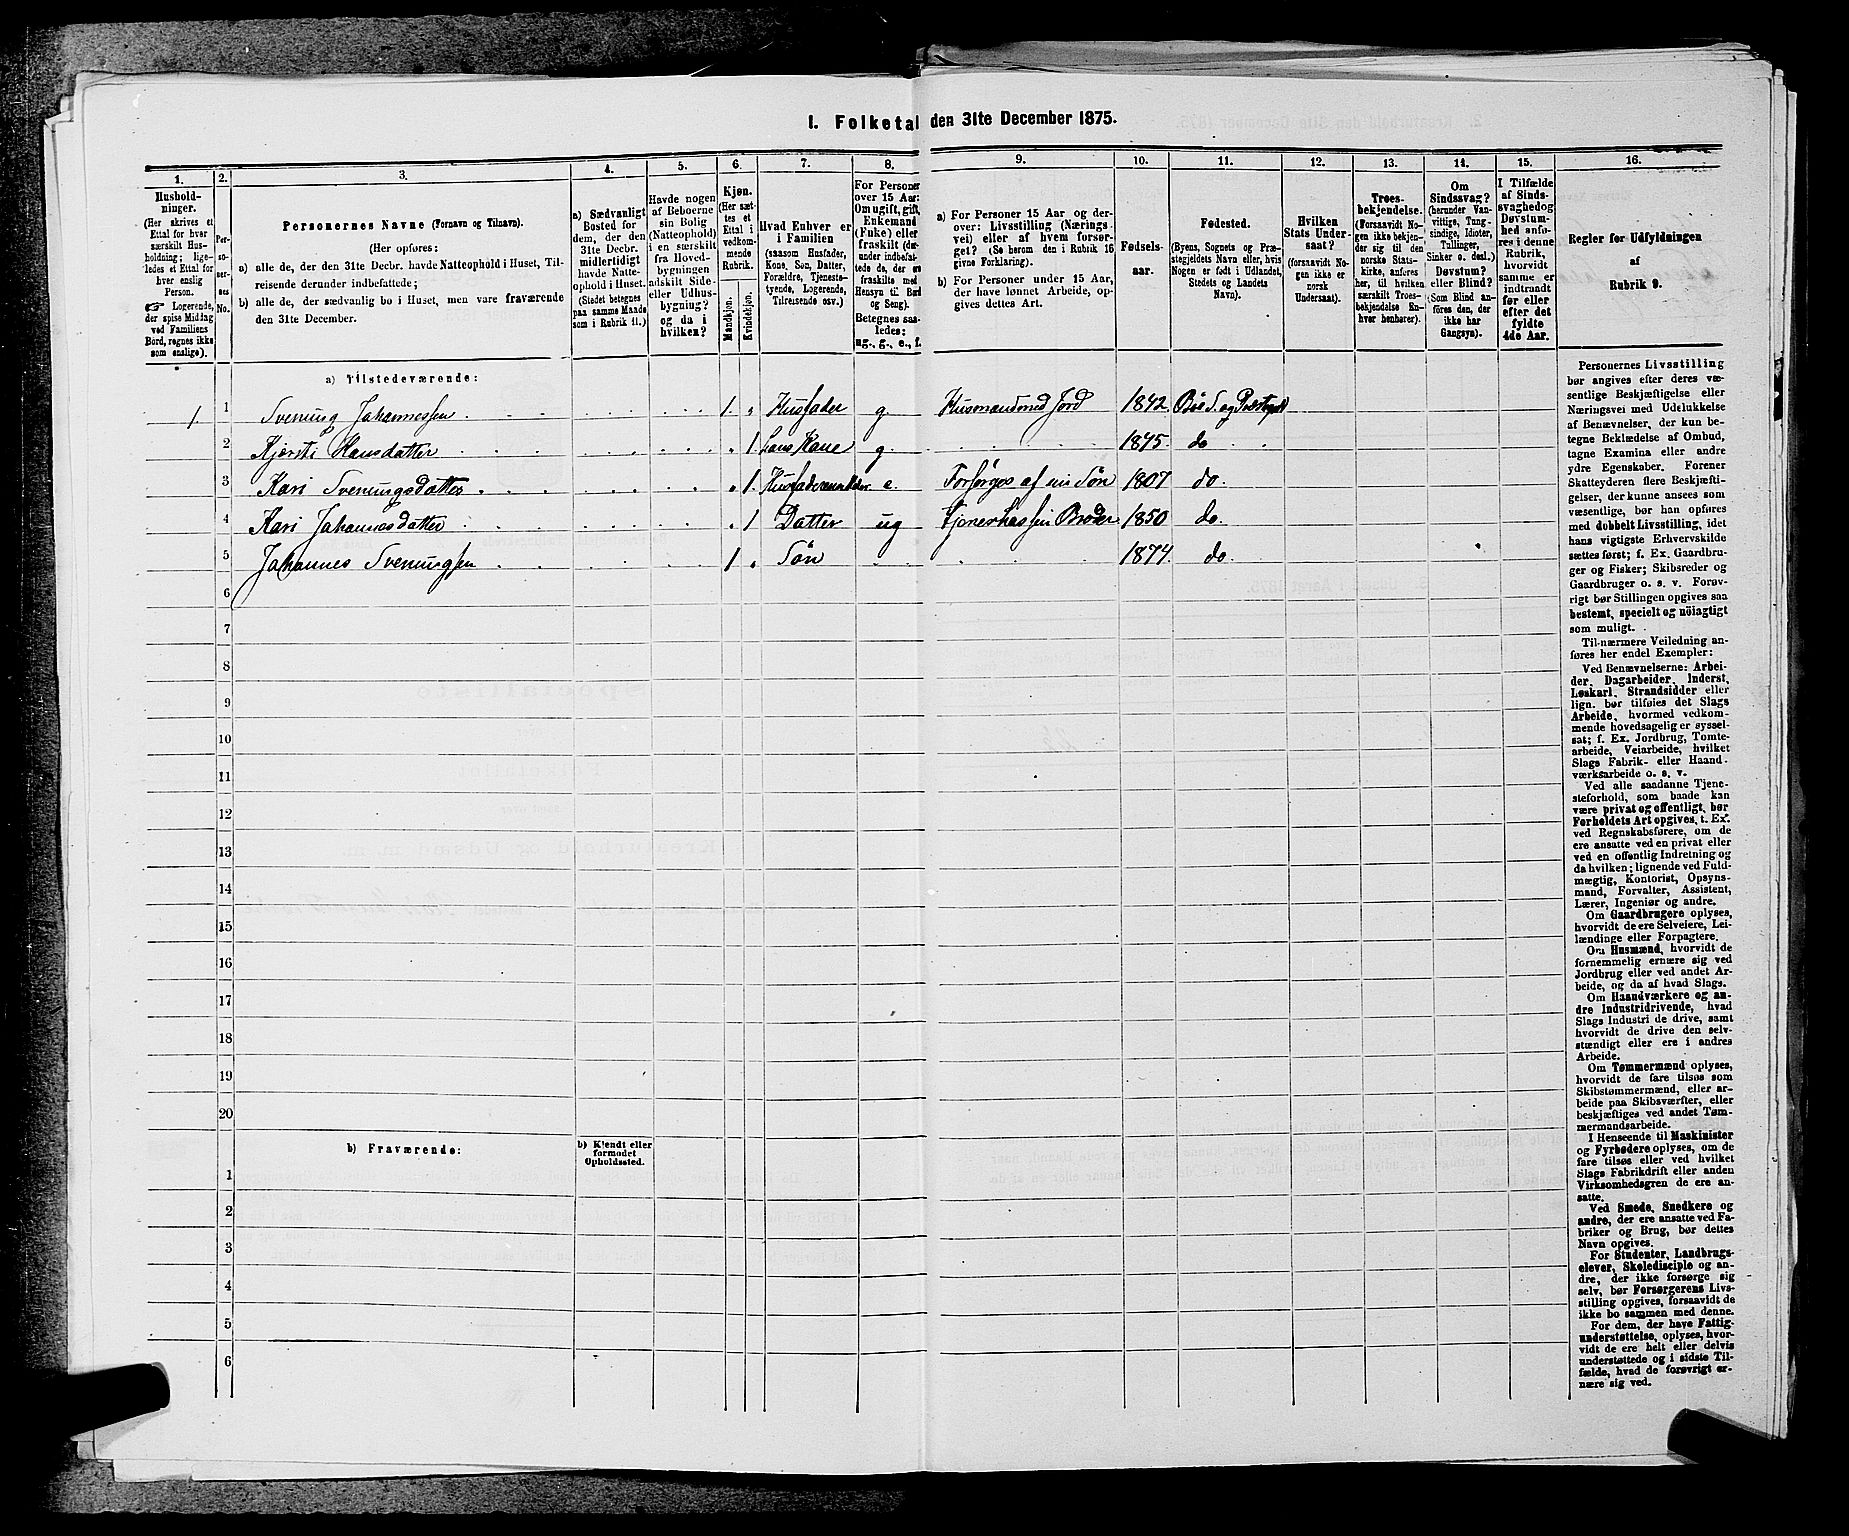 I. Folketal den 31te December 1875.
1. 2. 3. 4. 5. 6. 7. 8. 9. 10. 11. 12. 13. 14. 15. 16.
Hushold-
ninger.
(Her skrives et
Ettal for hver
særskilt Hus-
holdning; lige-
ledes et Ettal for
hver enslig
Person.
☞ Logerende,
der spise Middag
ved Familiens
Bord, regnes ikke
som enslige).
Per-
so-
ner-
nes
No.
Personernes Navne (Fornavn og Tilnavn).
(Her opføres:
a) alle de, der den 31te Decbr. havde Natteophold i Huset, Til-
reisende derunder indbefattede;
b) alle de, der sædvanlig bo i Huset, men vare fraværende
den 31te December.
a) Sædvanligt
Bosted for
dem, der den
31te Decbr.
midlertidigt
havde Natte-
ophold i Huset.
(Stedet betegnes
paa samme Maade
som i Rubrik 11.)
Havde nogen
af Beboerne
sin Bolig
(Natteophold)
i en særskilt
fra Hoved-
bygningen
adskilt Side-
eller Udhus-
bygning?
og da i
hvilken?
Kjøn.
(Her sæt-
tes et
Ettal i
vedkom-
mende
Rubrik.
Mandkjøn.
Kvindekjøn.
Hvad Enhver er
i Familien
(saasom Husfader,
Kone, Søn, Datter,
Forældre, Tjeneste-
tyende, Logerende,
Tilreisende osv.)
For Personer
over 15 Aar:
Om ugift, gift,
Enkemand
(Enke) eller
fraskilt (der-
under indbefat-
tede de, der ere
fraskilte med
Hensyn til Bord
og Seng).
Betegnes saa-
ledes:
ug., g., e., f.
a) For Personer 15 Aar og der-
over: Livsstilling (Nærings-
vei) eller af hvem forsør-
get? (Se herom den i Rubrik 16
givne Forklaring).
b) For Personer under 15 Aar,
der have lønnet Arbeide, op-
gives dettes Art.
Fødsels-
aar.
Fødested.
(Byens, Sognets og Præ-
stegjeldets Navn eller, hvis
Nogen er født i Udlandet,
Stedets og Landets
Navn).
Hvilken
Stats Under-
saat?
(forsaavidt No-
gen ikke er
norsk
Undersaat).
Troes-
bekjendelse.
(Forsaavidt No-
gen ikke bekjen-
der sig til den
norske Stats-
kirke, anføres
her, til hvilken
særskilt Troes-
bekjendelse En-
hver henhører).
Om
Sindssvag?
(herunder Van-
vittige, Tung-
sindige, Idioter,
Tullinger,
Sinker o. desl.)
Døvstum?
eller Blind?
(Som Blind an-
føres den, der
ikke har
Gangsyn).
I Tilfælde
af Sinds-
svaghed og
Døvstum-
hed anfø-
res i denne
Rubrik,
hvorvidt
samme er
indtraadt
før eller
efter det
fyldte
4de Aar.
Regler for Udfyldningen
af
Rubrik 9.
a) Tilstedeværende:
1. 1 Svenung Johannessen 1. „ Husfader g. Husmand med Jord 1842 Bøe S. og Præstegjd
2 Kjersti Hansdatter „ 1. hans Kone g. 1845 do
3 Kari Svenungsdatter „ 1. e. Forsørges af sin Søn 1807 do.
4 Kari Johannesdatter „ 1 Datter ug Tjener hos sin Broder 1850 do.
5 Johannes Svenungsen 1 „ Søn 1874. do.
6
7
8
9
10
11
12
13
14
15
16
17
18
19
20
b) Fraværende:
b) Kjendt eller
formodet
Opholdssted.
1
2
3
4
5
6
Personernes Livsstilling
bør angives efter deres væ-
sentlige Beskjæftigelse eller
Næringsvei med Udelukkelse
af Benævnelser, der kun be-
tegne Beklædelse af Ombud,
tagne Examina eller andre
ydre Egenskaber. Forener
Skatteyderen flere Beskjæfti-
gelser, der kunne ansees som
væsentlige, bør han opføres
med dobbelt Livsstilling, idet
hans vigtigste Erhvervskilde
sættes først; f. Ex. Gaardbru-
ger og Fisker; Skibsreder og
Gaardbruger o. s. v. Forøv-
rigt bør Stillingen opgives saa
bestemt, specielt og nöiagtigt
som muligt.
Til nærmere Veiledning an-
føres her endel Exempler:
Ved Benævnelserne: Arbei-
der, Dagarbeider, Inderst,
Løskarl, Strandsidder eller
lign. bør tilføies det Slags
Arbeide, hvormed vedkom-
mende hovedsagelig er syssel-
sat; f. Ex. Jordbrug, Tomte-
arbeide, Veiarbeide, hvilket
Slags Fabrik- eller Haand-
værksarbeide o. s. v.
Ved alle saadanne Tjene-
steforhold, som baade kan
være privat og offentligt, bør
Forholdets Art opgives, t. Ex.
ved Regnskabsførere, om de
ere ansatte ved en privat eller
ved en offentlig Indretning og
da hvilken; lignende ved Fuld-
mægtig, Kontorist, Opsyns-
mand, Forvalter, Assistent,
Lærer, Ingeniør og andre.
Om Gaardbrugere oplyses,
hvorvidt de ere Selveiere, Lei-
lændinge eller Forpagtere.
Om Husmænd, hvorvidt de
fornemmelig ernære sig ved
Jordbrug eller ved andet Ar-
beide, og da af hvad Slags.
Om Haandværkere og an-
dre Industridrivende, hvad
Slags Industri de drive, samt
hvorvidt de drive den selv-
stændigt eller ere i andres
Arbeide.
Om Tømmermænd oplyses,
hvorvidt de fare tilsøs som
Skibstømmermænd, eller ar-
beide paa Skibsværfter, eller
beskjæftiges ved andet Tøm-
mermandsarbeide.
I Henseende til Maskinister
og Fyrbødere oplyses, om de
fare tilsøs eller ved hvilket
Slags Fabrikdrift eller anden
Virksomhedsgren de ere an-
satte.
Ved Smede, Snedkere og
andre, der ere ansatte ved Fa-
briker og Brug, bør dettes
Navn opgives.
For Studenter, Landbrugs-
elever, Skoledisciple og an-
dre, der ikke forsørge sig
selv, bør Forsørgerens Livs-
stilling opgives, forsaavidt de
ikke bo sammen med denne.
For dem, der have Fattig-
understøttelse, oplyses, hvor-
vidt de ere helt eller delvis
understøttede og i sidste Til-
fælde, hvad de forøvrigt er-
nære sig ved.